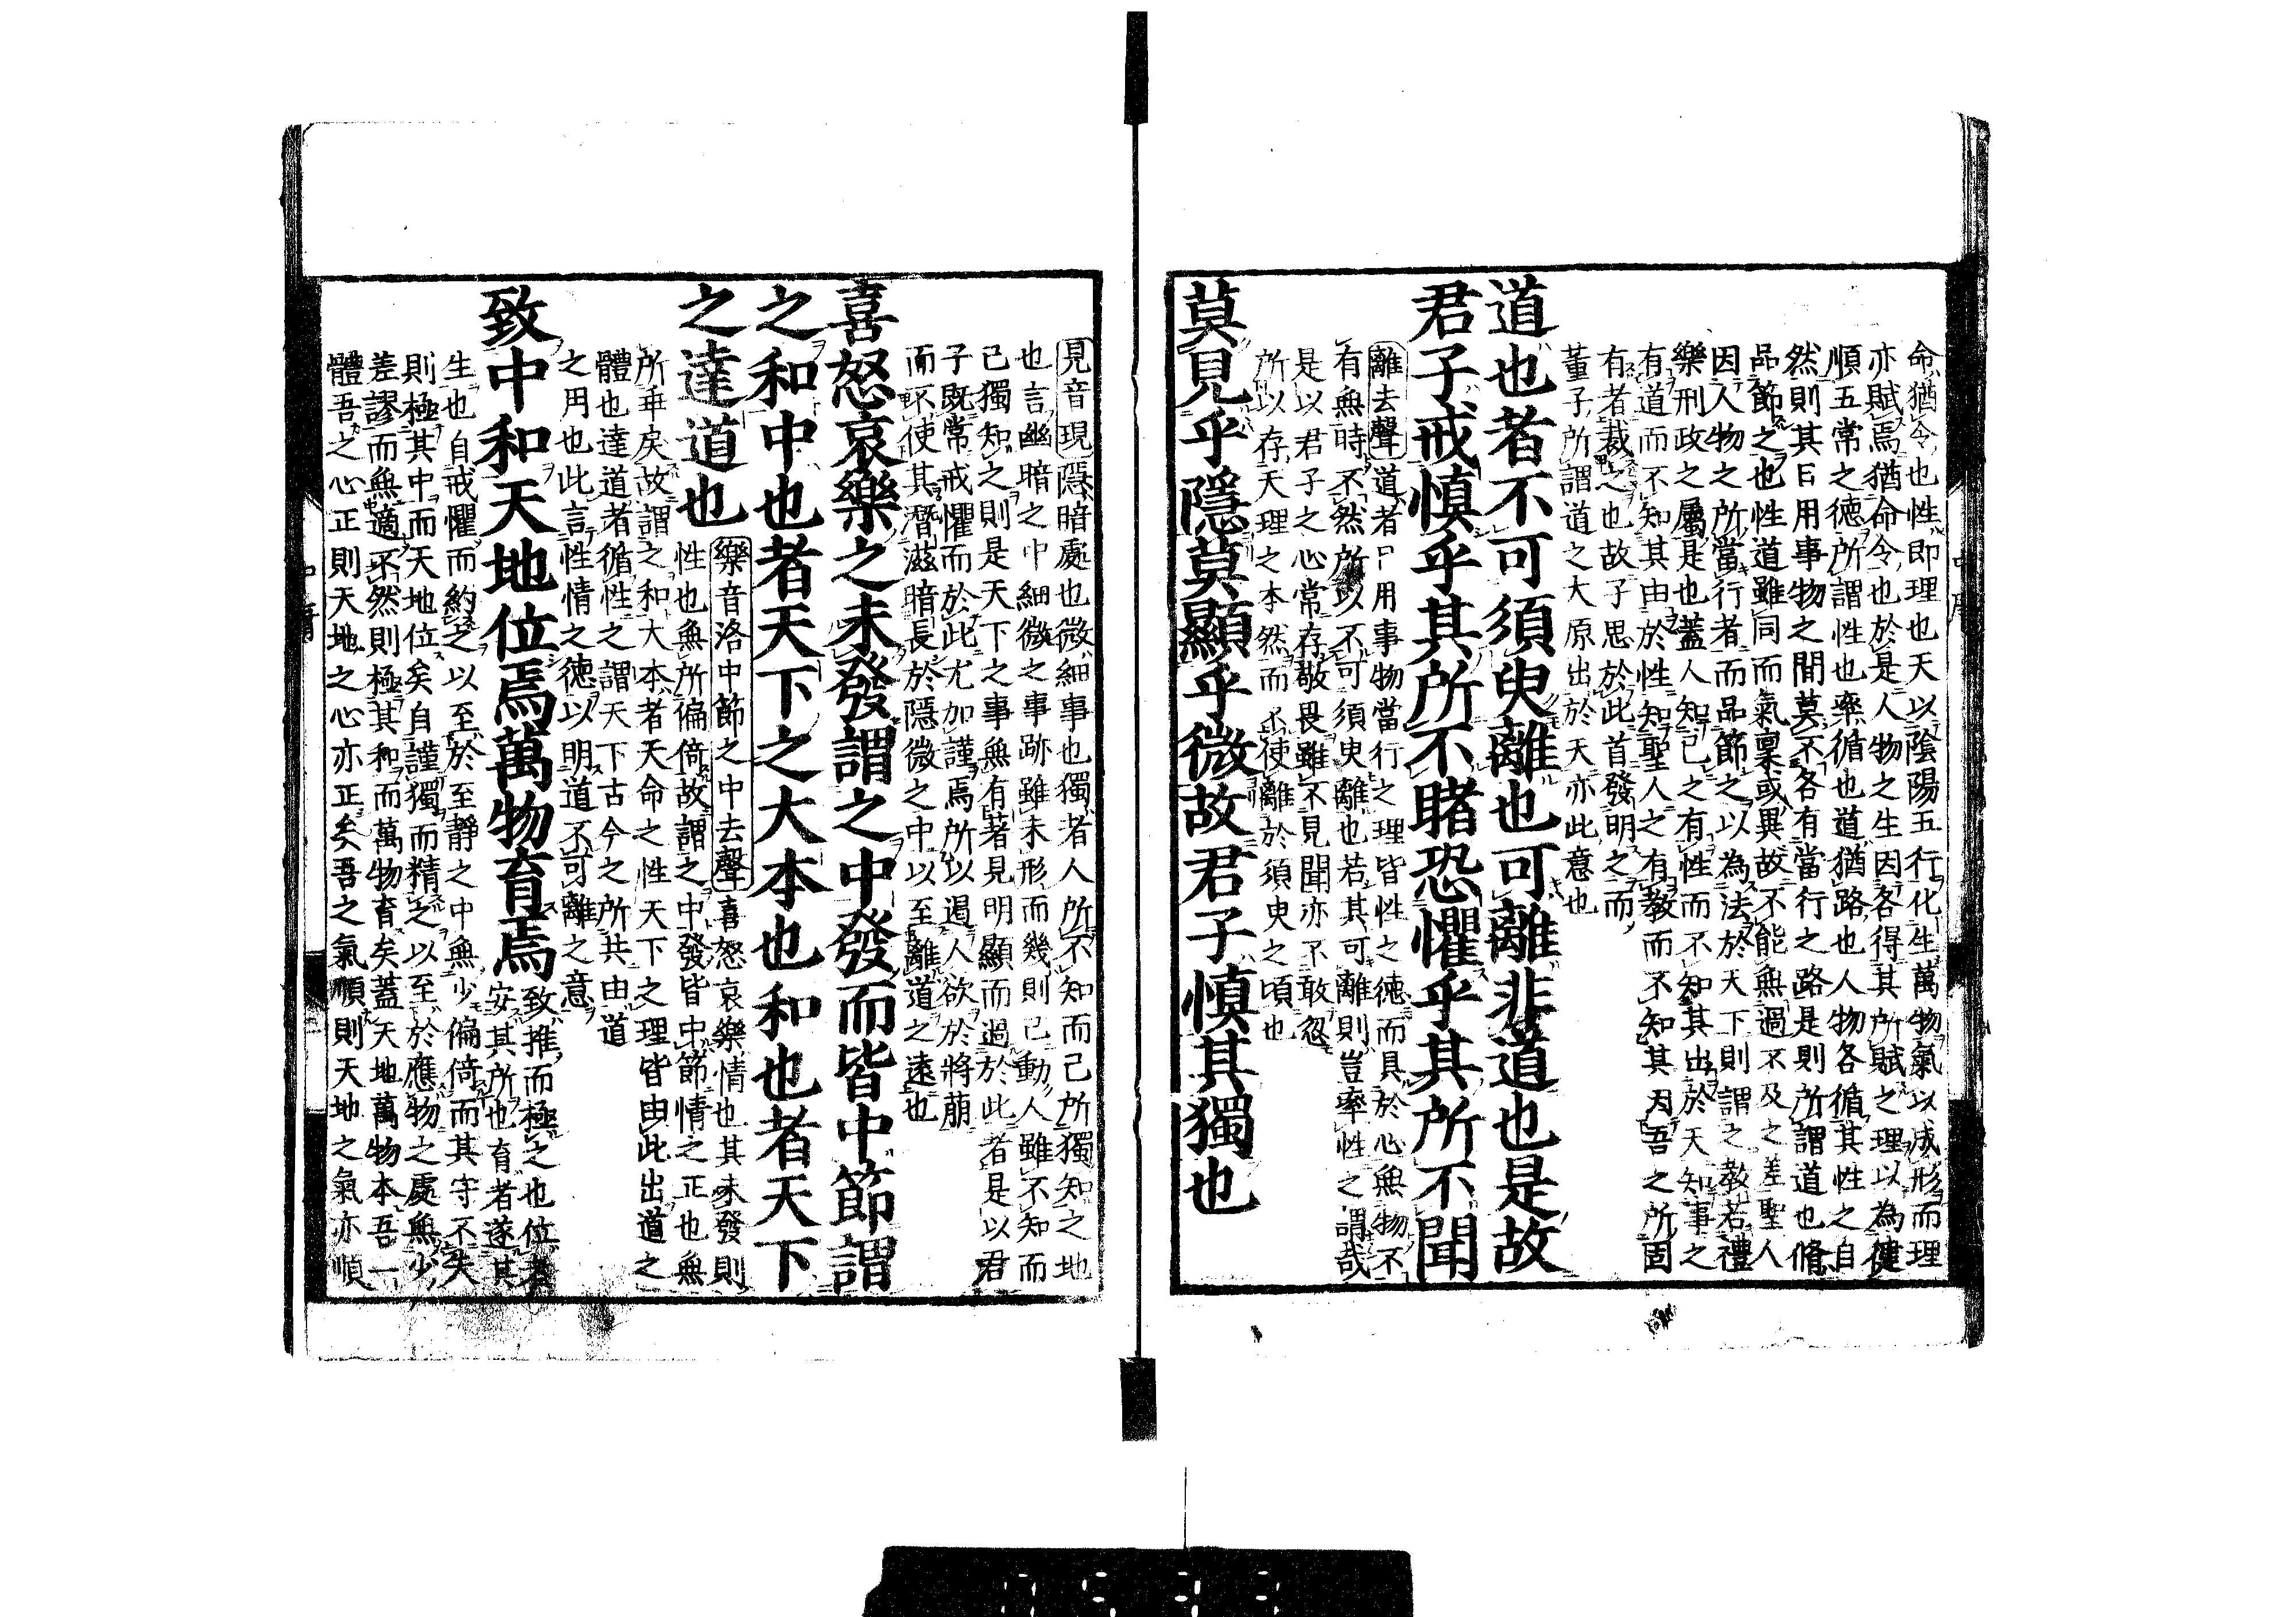 命猶令也性即理也天以陰陽五行化生萬物氣以成形而理
亦賦焉猶命令也於是人物之生因各得其所賦之理以為健
順五常之德所謂性也率循也道猶路也人物各循其性之自
然則其日用事物之間莫不各有當行之路是則所謂道也脩
品節之也性道雖同而氣稟或異故不能無過不及之差聖人
因人物之所當行者而品節之以為法於天下則謂之教若禮
樂刑政之屬是也蓋人知己之有性而不知其出於天知事之
有道而不知其由於性知聖人之有教而不知其因吾之所固
有者裁之也故子思於此首發明之而
董子所謂道之大原出於天亦此意也
道也者不可須臾離也可離非道也是故
君子戒慎乎其所不睹恐懼乎其所不聞
離去聲道者日用事物當行之理皆性之德而具於心無物不
有無時不然所以不可須臾離也若其可離則豈率性之謂哉
是以君子之心常存敬畏雖不見聞亦不敢忽
所以存天理之本然而不使離於須臾之頃也
莫見乎隱莫顯乎微故君子慎其獨也
見音現隱暗處也微細事也獨者人所不知而己所獨知之地
也言幽暗之中細微之事跡雖未形而幾則已動人雖不知而
己獨知之則是天下之事無有著見明顯而過於此者是以君
子既常戒懼而於此尤加謹焉所以遏人欲於將萠
而不使其潛滋暗長於隱微之中以至離道之遠也
喜怒哀樂之未發謂之中發而皆中節謂
之和中也者天下之大本也和也者天下
之達道也
樂音洛中節之中去聲喜怒哀樂情也其未發則
性也無所偏倚故謂之中發皆中節情之正也無
所乖戾故謂之和大本者天命之性天下之理皆由此出道之
體也達道者循性之謂天下古今之所共由道
之用也此言性情之德以明道不可離之意
致中和天地位焉萬物育焉
致推而極之也位者
安其所也育者遂其
生也自戒懼而約之以至於至靜之中無少偏倚而其守不失
則極其中而天地位矣自謹獨而精之以至於應物之處無少
差謬而無適不然則極其和而萬物育矣蓋天地萬物本吾一
體吾之心正則天地之心亦正矣吾之氣順則天地之氣亦順